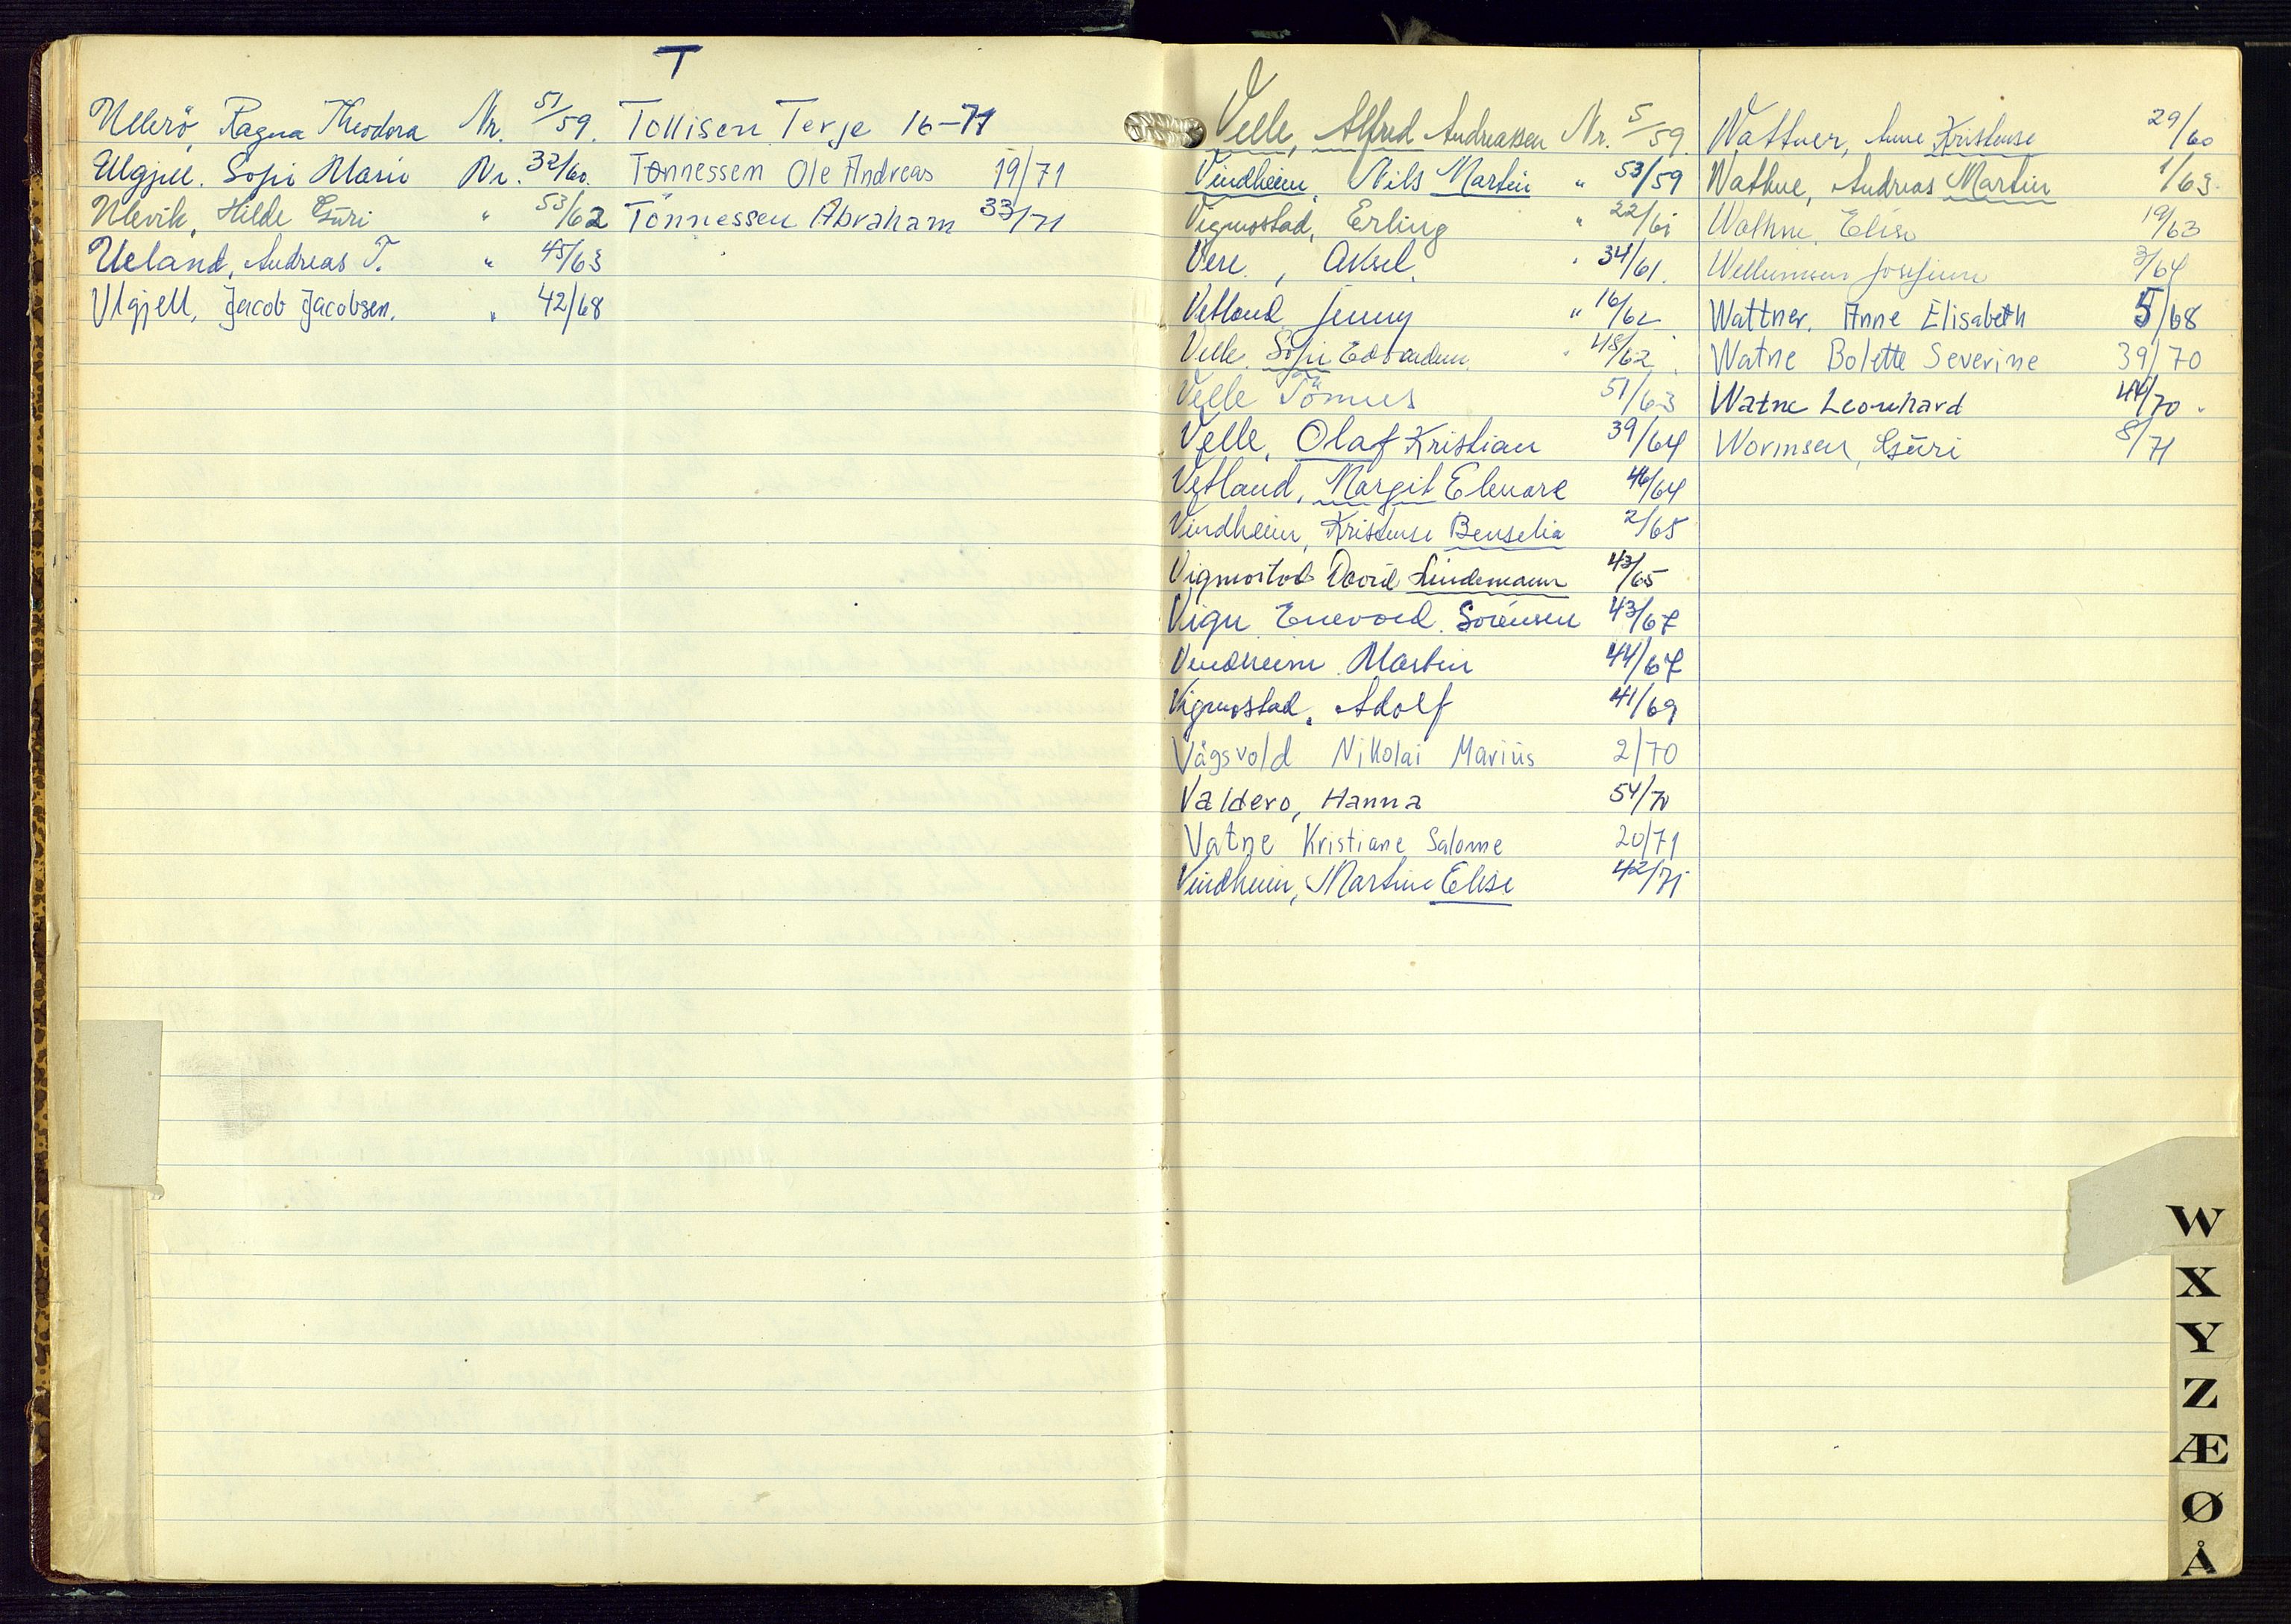 Ullerö, Ragna Theodora Nr. 51/59.
Ulgjell. Sofie Marie Nr. 32/60.
Ulevik, Hilde Guri " 53/62
Ueland, Andreas T. " 45/63
Ulgjell, Jacob Jacobsen. " 42/68
T
Tollisen Terje 16-71
Tønnessen Ole Andreas 19/71
Tönnessen Abraham 33/71
Velle, Alfred Andreassen Nr. 5/59.
Vindheim, Nils Martin " 53/59
Vigmostad, Erling " 22/61
Vere, Aksel. " 34/61.
Vetland Jenny " 16/62
Velle. Sofie Edvardine. " 48/62
Velle Tönnes 51/63
Velle, Olaf Kristian 39/64
Vetland, Margit Elenore 46/64
Vindheim, Kristense Benselia 2/65
Vigmostad David Lindemann 43/65
Vigu Enevold Sörensen 43/67
Vindheim Martin 44/67
Vigmostad, Adolf 41/69
Vågsvold Nikolai Marius 2/70
Valdero, Hanna 54/70
Vatne Kristiane Salome 20/71
Vindheim, Martine Elise 42/71
Wattner, Anne Kristense 29/60
Wathne, Andreas Martin 1/63.
Wathne, Elise 19/63
Wellumsen Josefine 3/64
Wattner. Anne Elisabeth 5/68
Watne Bolette Severine 39/70
Watne Leonhard 44/70.
Wormsen, Guri 8/71
W
X
Y
Z
Æ
Ø
Å